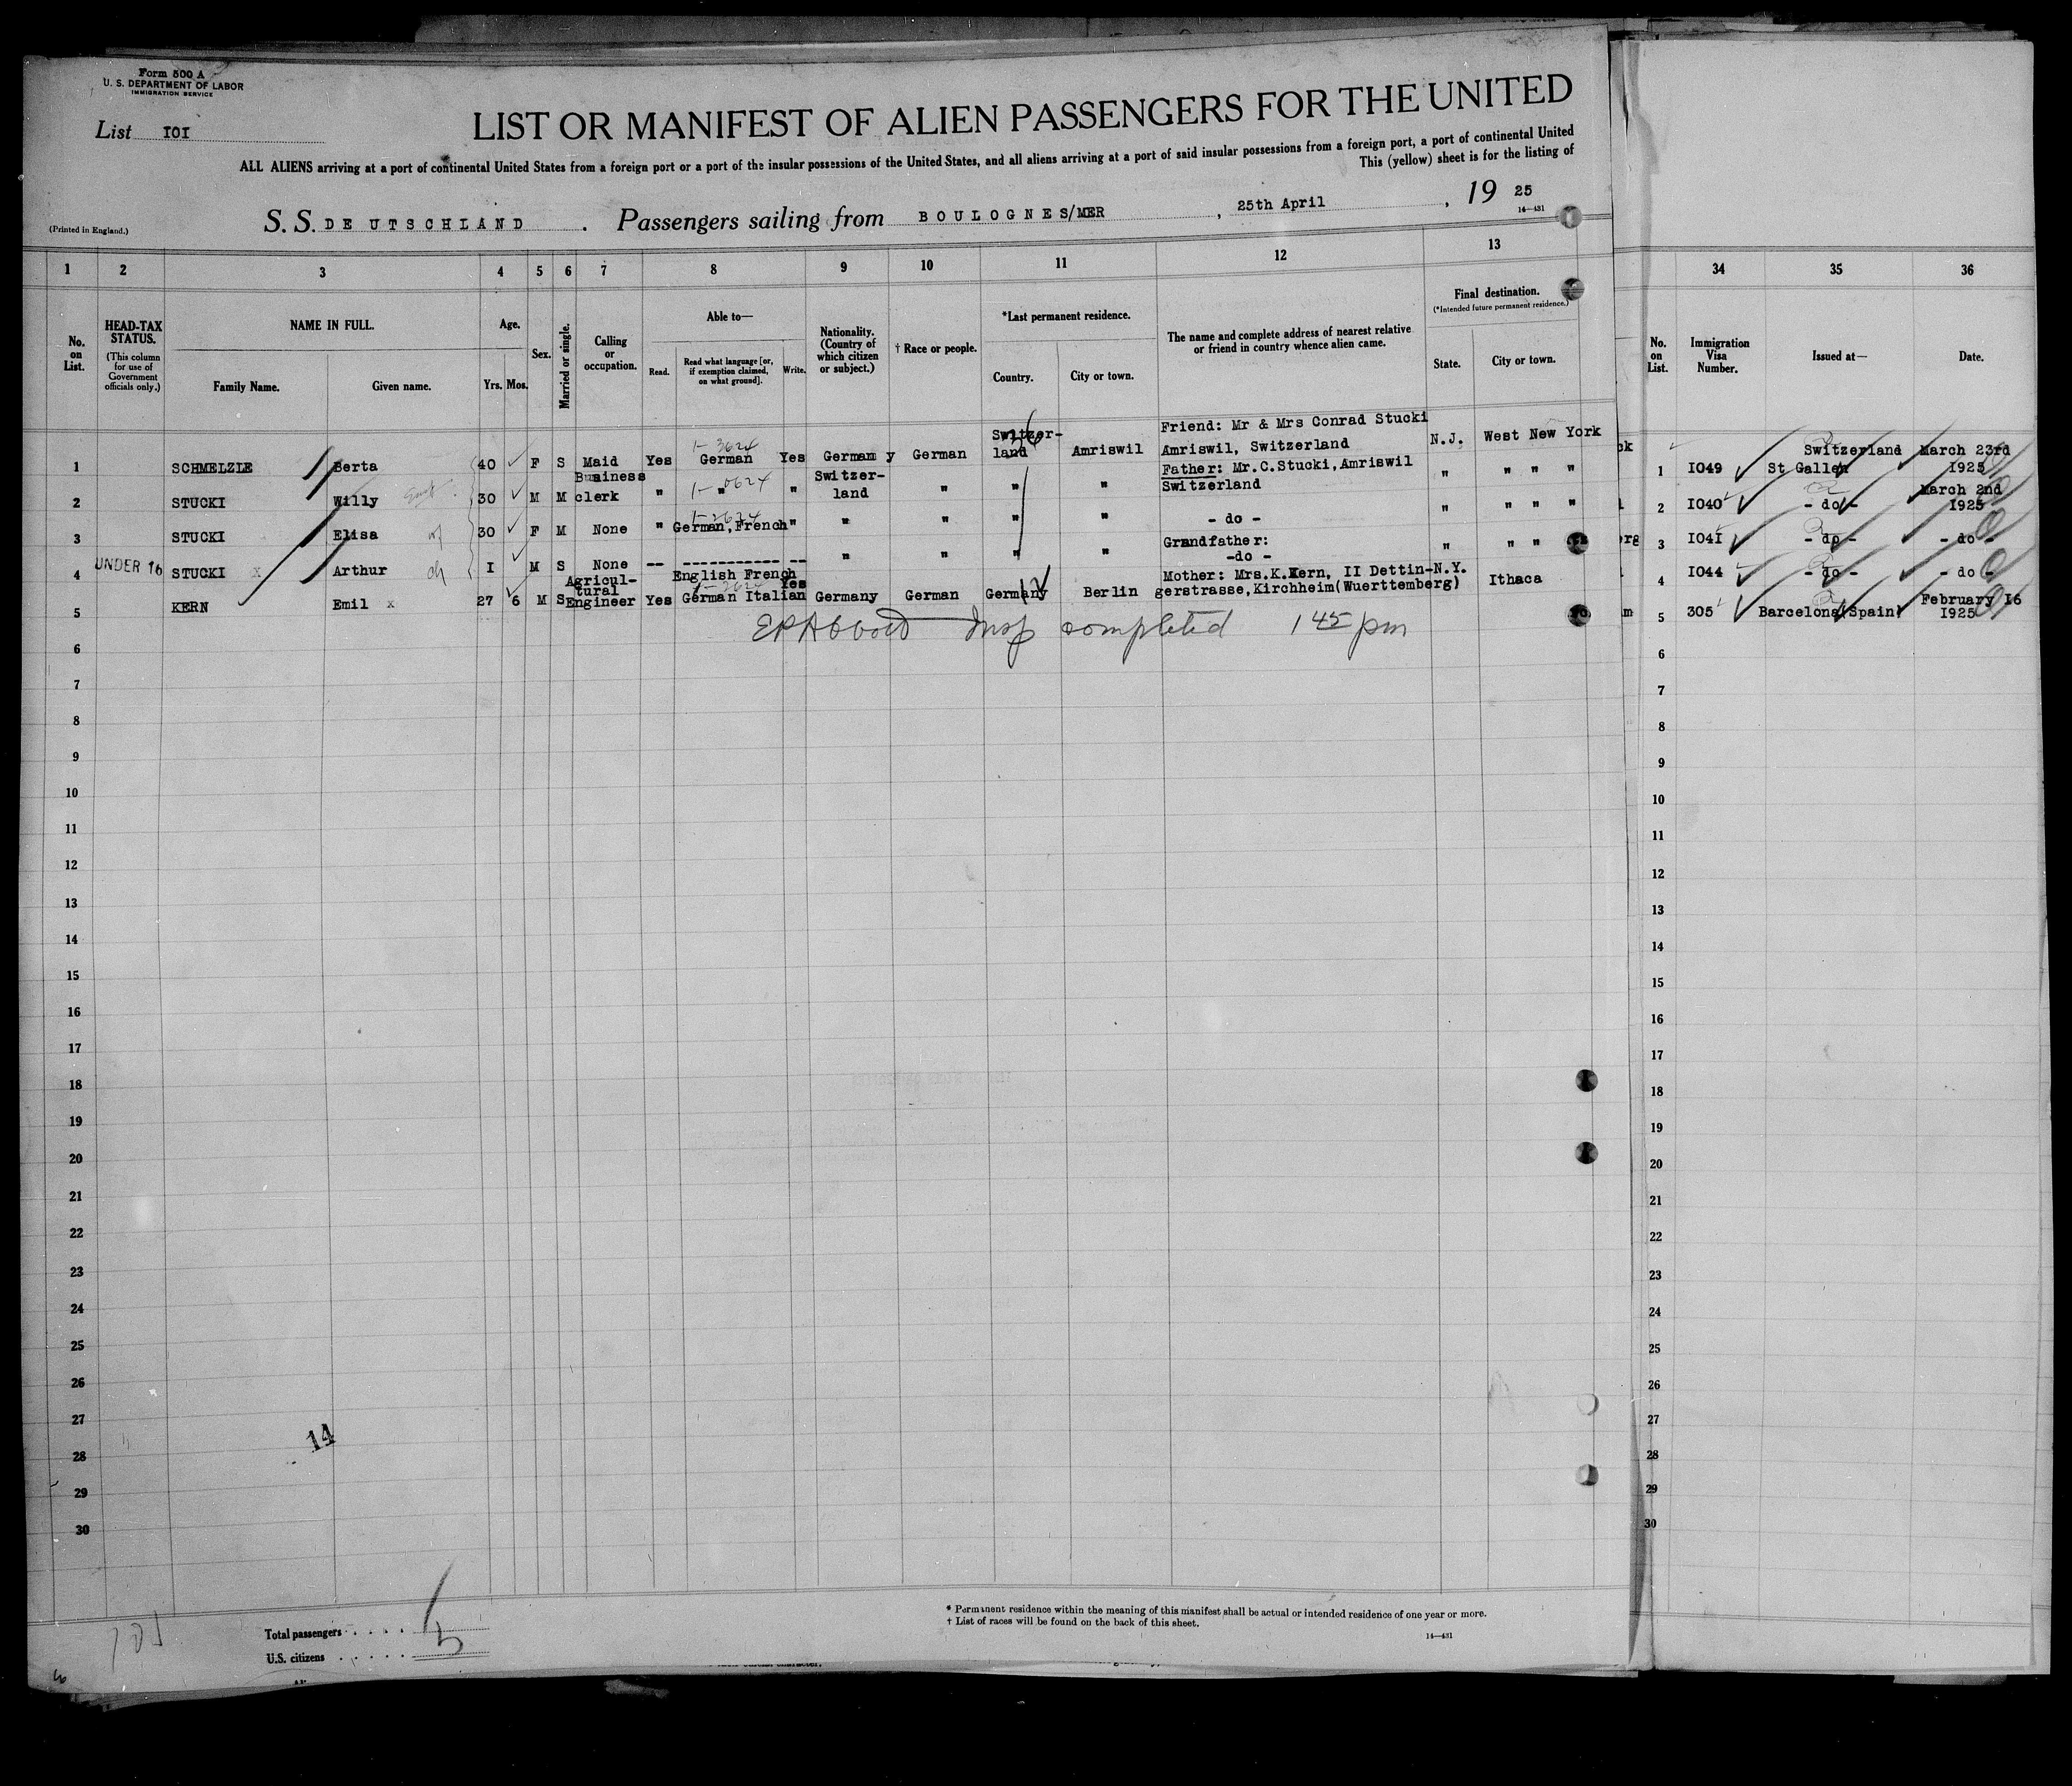 Form 500 A
U. S. DEPARTMENT OF LABOR
IMMIGRATION SERVICE
List IOI
LIST OR MANIFEST OF ALIEN PASSENGERS FOR THE UNITED
ALL ALIENS arriving at a port of continental United States from a foreign port or a port of the insular possessions of the United States, and all aliens arriving at a port of said insular possessions from a foreign port, a port of continental United
This (yellow) sheet is for the listing of
(Printed in England.)
S. S. DEUTSCHLAND . Passengers sailing from BOULOGNE S/MER , 25th April , 19 25
14—431
1 2 3 4 5 6 7 8 9 10 11 12 13 34 35 36
No. on List.
HEAD-TAX STATUS.
(This column for use of Government officials only.)
NAME IN FULL.
Family Name. Given name.
Age.
Yrs. Mos.
Sex.
Married or single.
Calling or occupation.
Able to—
Read. Read what language [or, if exemption claimed, on what ground]. Write.
Nationality. (Country of which citizen or subject.)
† Race or people.
*Last permanent residence.
Country. City or town.
The name and complete address of nearest relative or friend in country whence alien came.
Final destination.
(*Intended future permanent residence.)
State. City or town.
No. on List.
Immigration Visa Number.
Issued at—
Date.
1 SCHMELZLE Berta 40 F S Maid Yes German Yes German y German Switzer-land Amriswil Friend: Mr & Mrs Conrad Stucki Amriswil, Switzerland N.J. West New York 1 I049 Switzerland St Gallen March 23rd I925
2 STUCKI Willy 30 M M Business clerk " " " Switzer-land " " " Father: Mr.C.Stucki,Amriswil Switzerland " " " " 2 I040 - do - March 2nd I925
3 STUCKI Elisa wf 30 F M None " German,French " " " " " - do - " " " " 3 I04I - do - - do -
4 UNDER 16 STUCKI x Arthur ch I M S None -- ------------ -- " " " " Grandfather: -do - " " " 4 I044 - do - - do -
5 KERN Emil x 27 6 M S Agricul-tural Engineer Yes English French German Italian Yes Germany German Germany Berlin Mother: Mrs.K.Kern, II Dettin-gerstrasse,Kirchheim(Wuerttemberg) N.Y. Ithaca 5 305 Barcelona(Spain) February I6 I925
Insp completed 1 45 pm
6 6
7 7
8 8
9 9
10 10
11 11
12 12
13 13
14 14
15 15
16 16
17 17
18 18
19 19
20 20
21 21
22 22
23 23
24 24
25 25
26 26
27 27
14
28 28
29 29
30 30
Total passengers . . . . 5
U.S. citizens . . . . .
101
* Permanent residence within the meaning of this manifest shall be actual or intended residence of one year or more.
† List of races will be found on the back of this sheet.
14—431